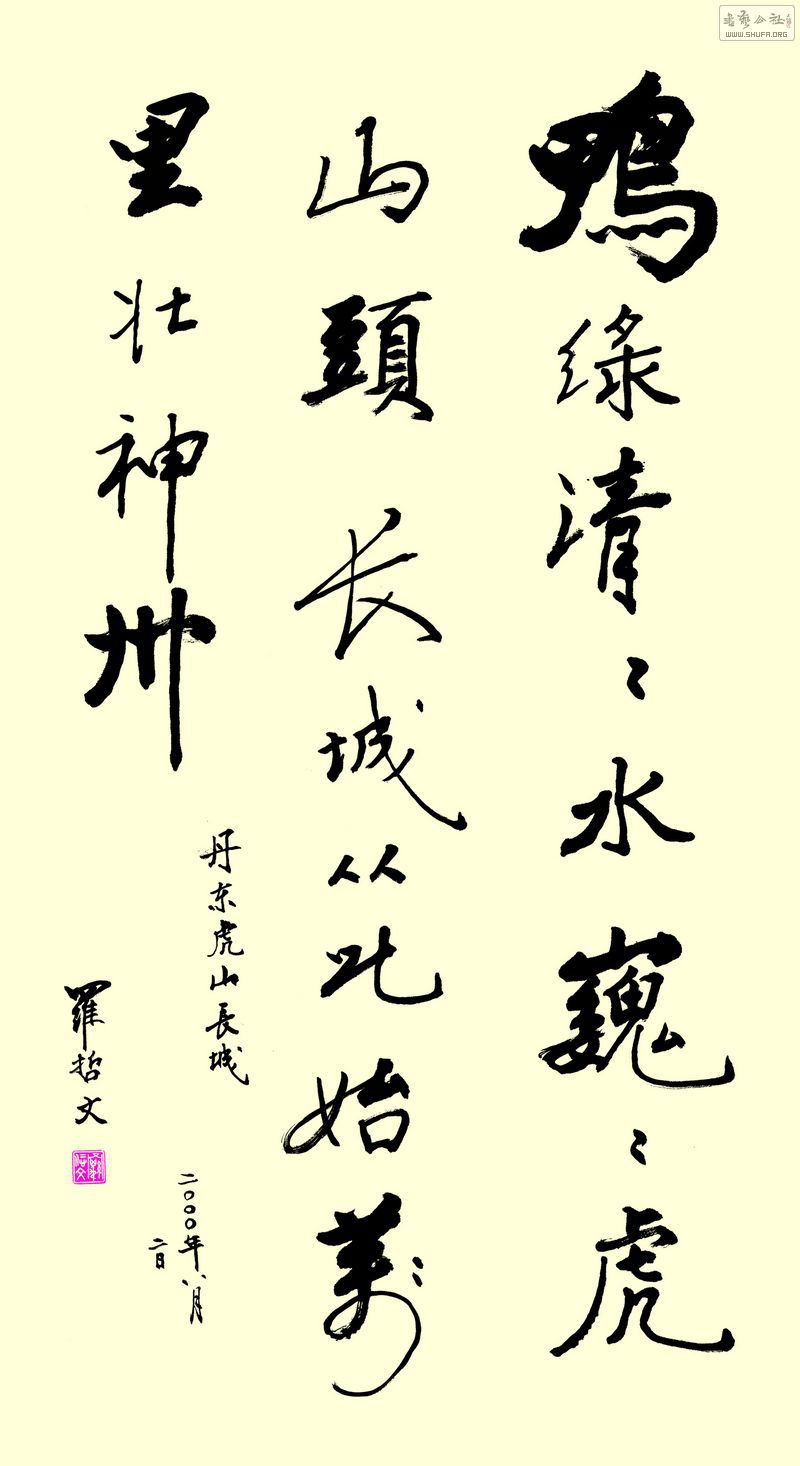 鴨綠清〻水巍〻虎
山頭长城从此始萬〻
里壮神州
丹东虎山長城
二〇〇〇年八月
二日
羅哲文
书艺公社
WWW.SHUFA.ORG